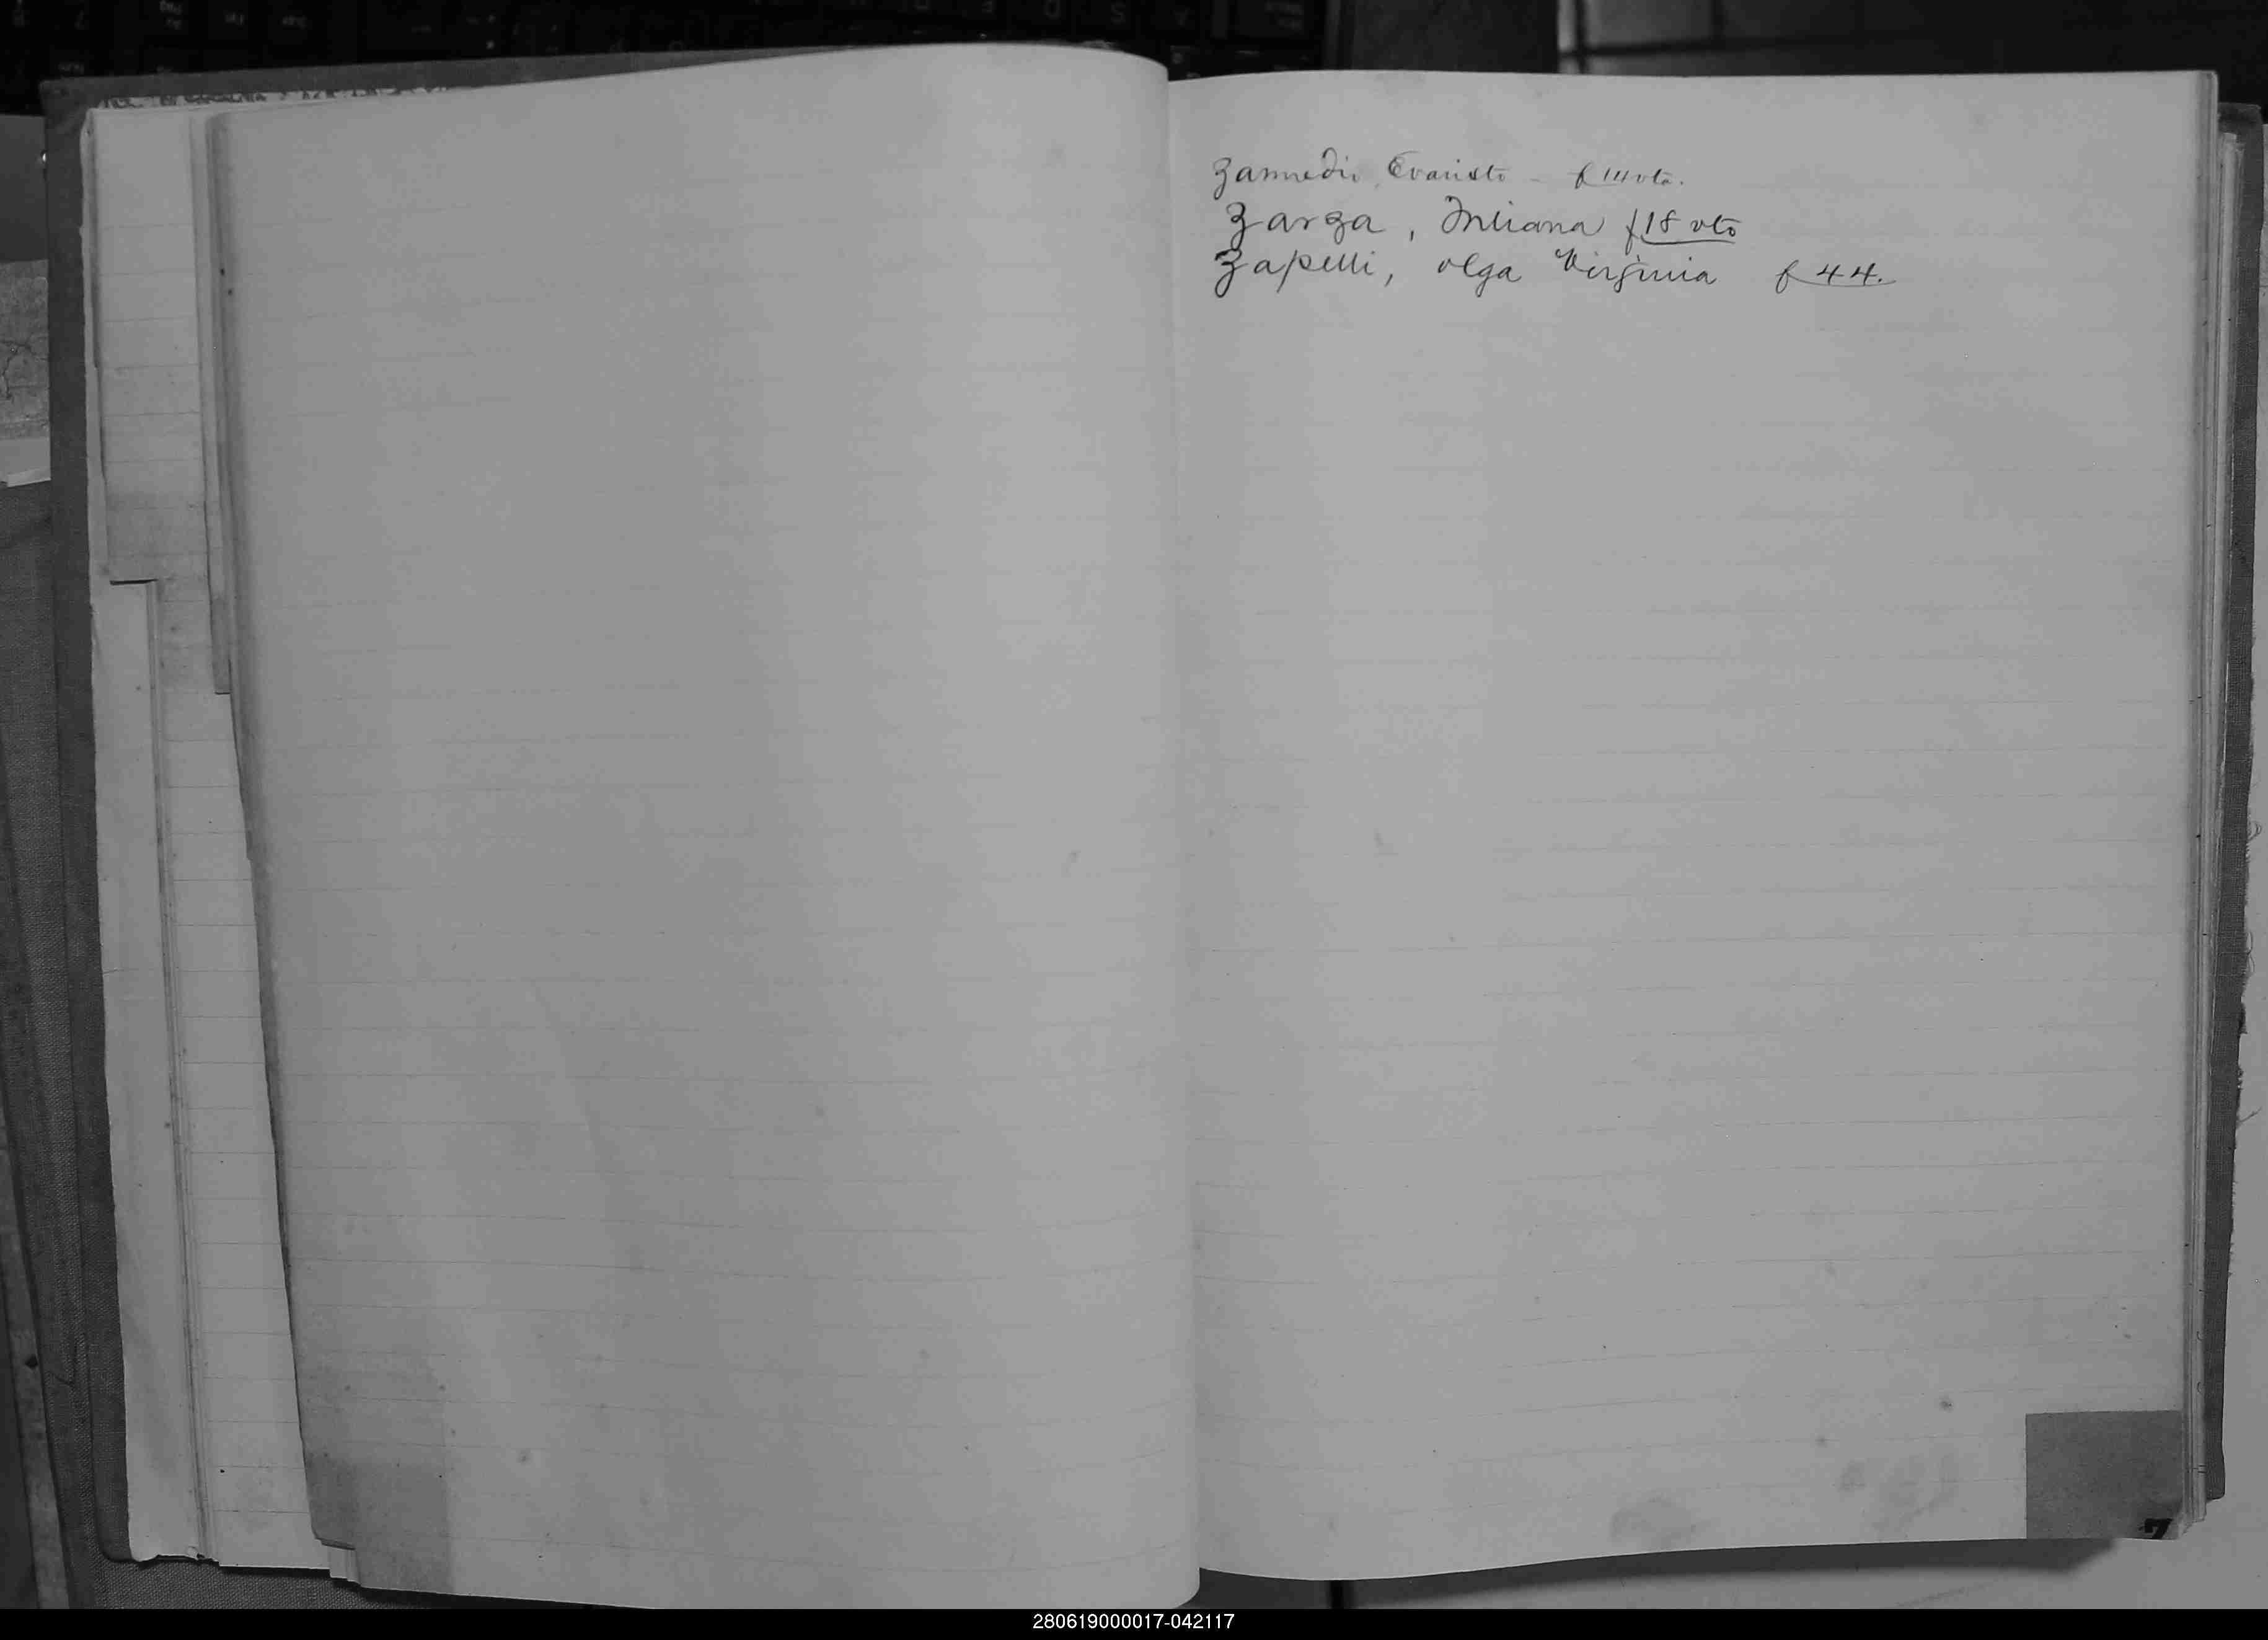 Zannedio, Evaristo - f 111 vta.
Zarza, Juliana f 18 vto
Zapelli, olga Virginia f 44.
Z
280619000017-042117